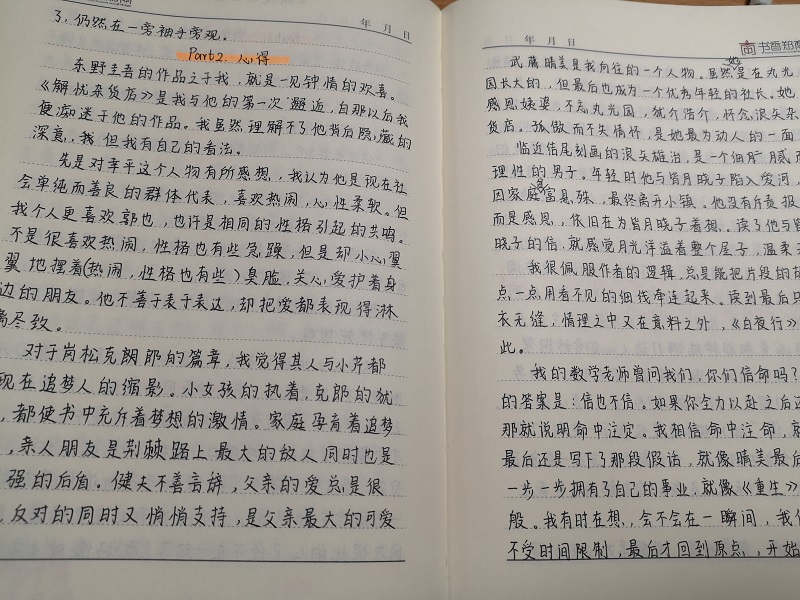 3. 仍然在一旁袖手旁观。
年 月 日
Part2. 心得
东野圭吾的作品之于我，就是一见钟情的欢喜。
《解忧杂货店》是我与他的第一次邂逅，自那以后我
便痴迷于他的作品。我虽然理解不了他背后隐藏的
深意，我 但我有自己的看法。
先是对幸平这个人物有所感想，我认为他是现在社
会单纯而善良的群体代表，喜欢热闹，心性柔软。但
我个人更喜欢郭也，也许是相同的性格引起的共鸣。
不是很喜欢热闹，性格也有些急躁，但是却小心翼
翼地摆着(热闹，性格也有些)臭脸，关心爱护着身
边的朋友。他不善于表于表达，却把爱都表现得淋
漓尽致。
对于岗松克朗郎的篇章，我觉得其人与小芹都
现在追梦人的缩影。小女孩的执着，克郎的犹
，都使书中充斥着梦想的激情。家庭孕育着追梦
，亲人朋友是荆棘路上最大的敌人同时也是
强的后盾。健夫不善言辞，父亲的爱总是很
，反对的同时又悄悄支持，是父亲最大的可爱
年 月 日
书香知
武藤晴美是我向往的一个人物。虽然她是在丸光
园长大的，但最后也成为一个优秀年轻的社长。她
感恩姨婆，不忘丸光园，犹介浩介，怀念浪矢杂
货店。孤傲而不失情怀，是她最为动人的一面
临近结尾刻画的浪矢雄治，是一个细腻感而
理性的男子。年轻时他与皆月晓子陷入爱河，
因家庭富悬殊，最终离开小镇。他没有所责报
而是感恩，依旧在为皆月晓子着想。读了他与皆
晓子的信，就感觉月光洋溢着整个屋子，温柔
我很佩服作者的逻辑，总是能把片段的故
点一点用看不见的细线牵连起来。读到最后只
衣无缝，情理之中又在意料之外，《白夜行》
此。
我的数学老师曾问我们，你们信命吗？
的答案是：信也不信。如果你全力以赴之后还
那就说明命中注定。我相信命中注命，就
最后还是写下了那段假话，就像晴美最后
一步一步拥有了自己的事业，就像《重生》
般。我有时在想，会不会在一瞬间，我们
不受时间限制，最后才回到原点，开始